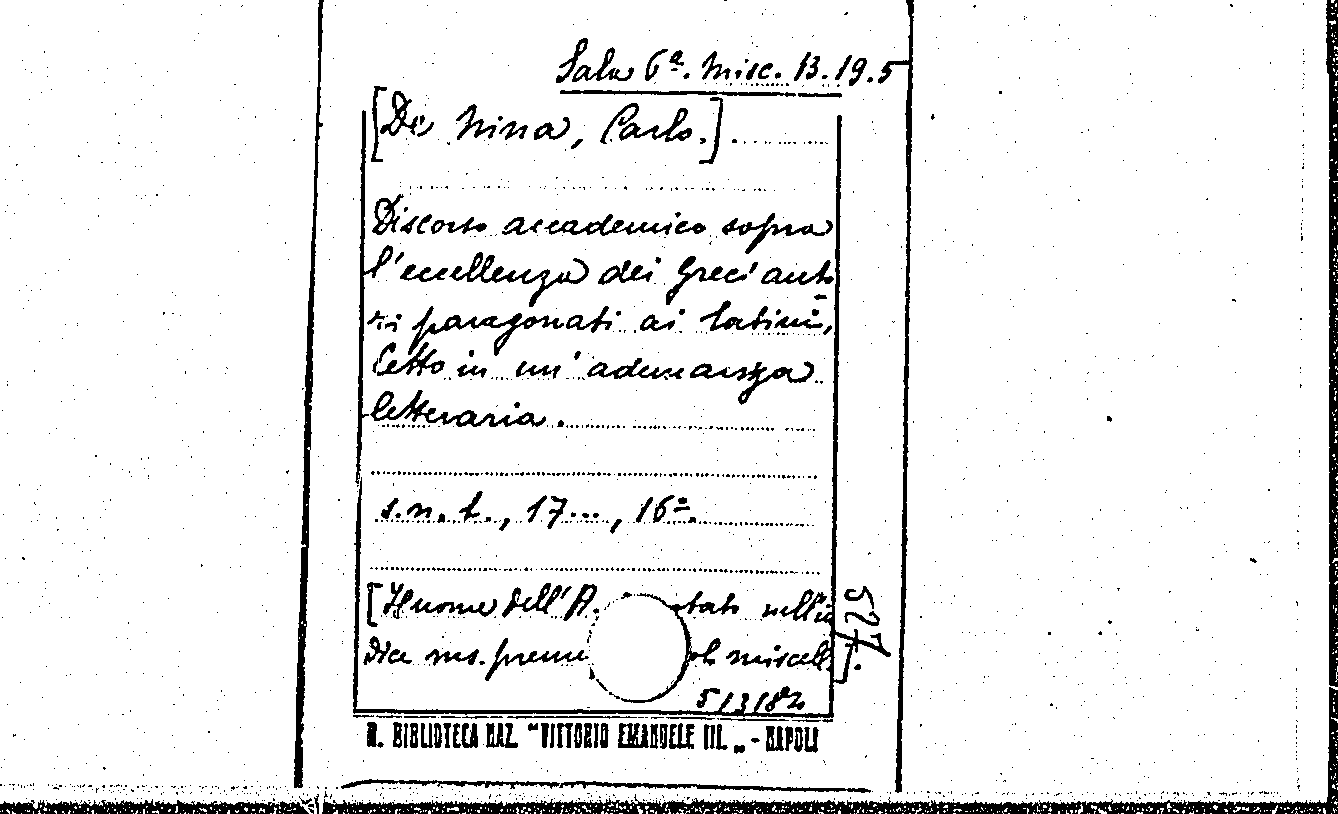 Sala 6ª. Misc. B.19.5
[De Ninna, Carlo.]
Discorso accademico sopra
l'eccellenza dei Greci auto
ri paragonati ai latini,
Letto in un' adunanza
letteraria.
s.n.t., 17..., 16º.
[Il nome dell'A. tato nell'in
dice ms. premе miscell.]
513182
527
R. BIBLIOTECA NAZ. "VITTORIO EMANUELE III. „ - NAPOLI